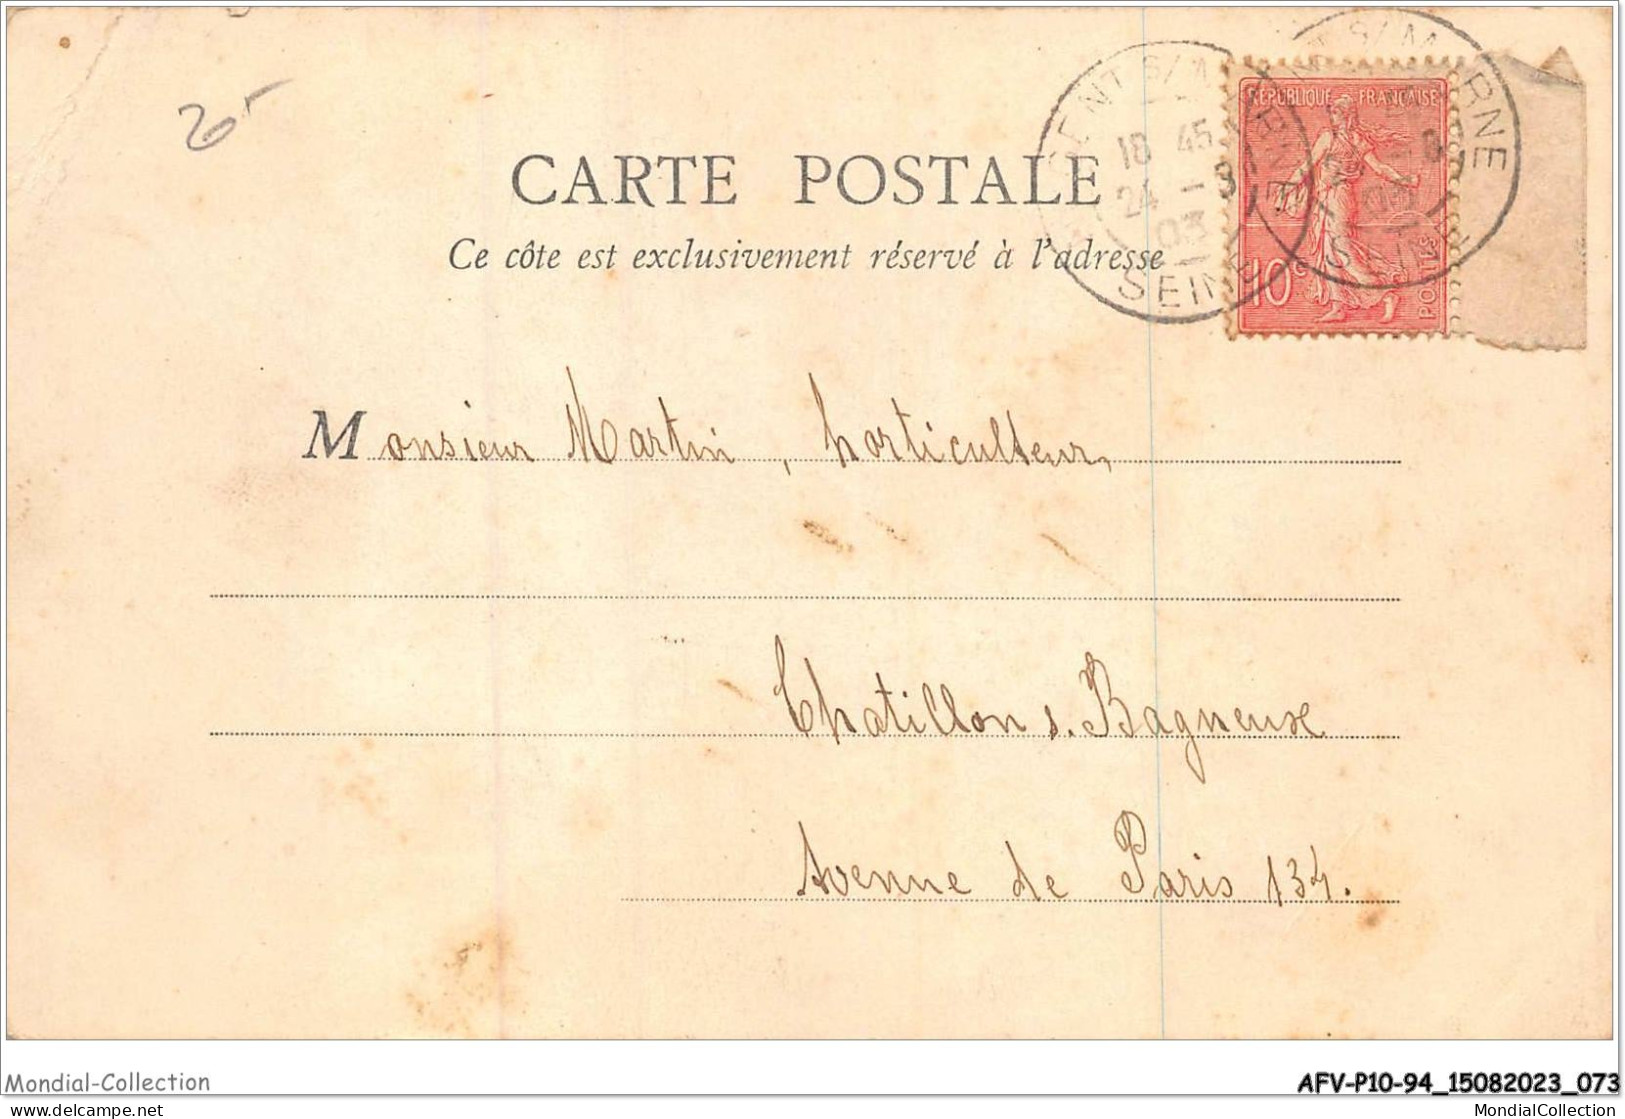 6-
CARTE POSTALE
Ce côte est exclusivement réservé à l'adresse
RÉPUBLIQUE FRANÇAISE
10c
18 45
24 - 9
03
SEINE
S/MARNE
SEINE
Monsieur Martin, horticulteur,
Chatillon s. Bagneux
Avenue de Paris 134.
Mondial-Collection
AFV-P10-94_15082023_073
www.delcampe.net
MondialCollection